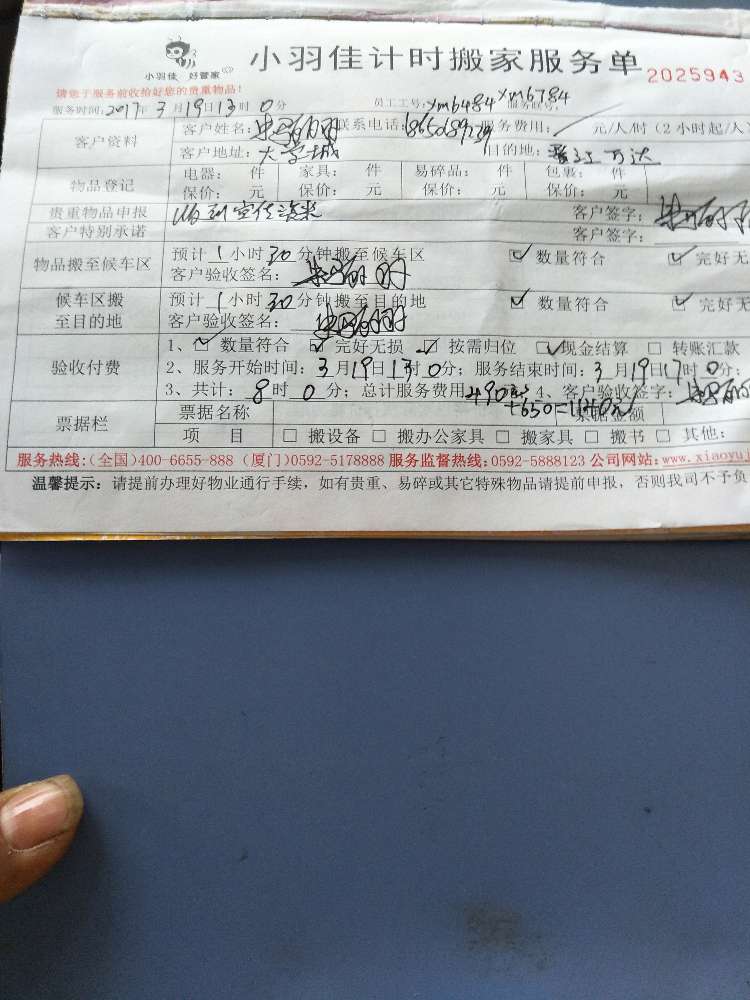 小羽佳 好管家
小羽佳计时搬家服务单 2025943
请您于服务前收拾好您的贵重物品!
服务时间:2017年3月19日13时0分 员工工号:xm6484 xm6784
客户资料 客户姓名: 联系电话: 服务费用: 元/人/时(2小时起/人
客户地址:大学城 目的地: 万达
物品登记 电器: 件 家具: 件 易碎品: 件 包裹: 件
保价: 元 保价: 元 保价: 元 保价: 元
贵重物品申报 客户签字:
客户特别承诺 客户签字:
物品搬至候车区 预计1小时30分钟搬至候车区 数量符合 完好无
客户验收签名:
候车区搬至目的地 预计1小时30分钟搬至目的地 数量符合 完好无
客户验收签名:
验收付费 1、数量符合 完好无损 按需归位 现金结算 转账汇款
2、服务开始时间:3月19日13时0分;服务结束时间:3月19日17时0分;
3、共计:8时0分;总计服务费用490元 4、客户验收签字:
+650=1140元
票据栏 票据名称 票据金额
项 目 搬设备 搬办公家具 搬家具 搬书 其他:
服务热线:(全国)400-6655-888 (厦门)0592-5178888 服务监督热线:0592-5888123 公司网站:www.xiaoyuj
温馨提示:请提前办理好物业通行手续,如有贵重、易碎或其它特殊物品请提前申报,否则我司不予负